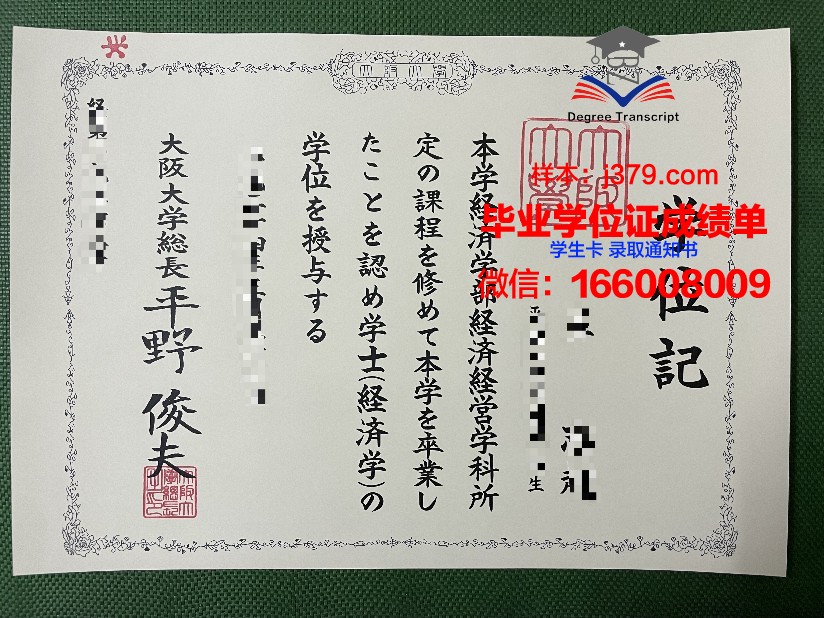 学位記
生
本学経済学部経済経営学科所
定の課程を修めて本学を卒業し
たことを認め学士(経済学)の
学位を授与する
大阪大学総長 平野 俊夫
Degree Transcript
样本：j379.com
毕业学位证成绩单
学生卡 录取通知书
微信：166008009